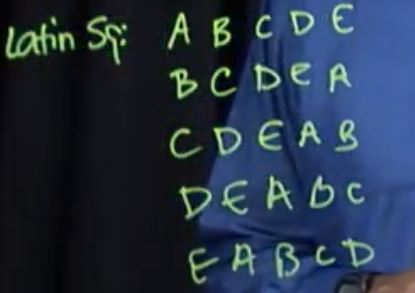 Latin Sq: A B C D E
B C D E A
C D E A B
D E A D C
E A B C D